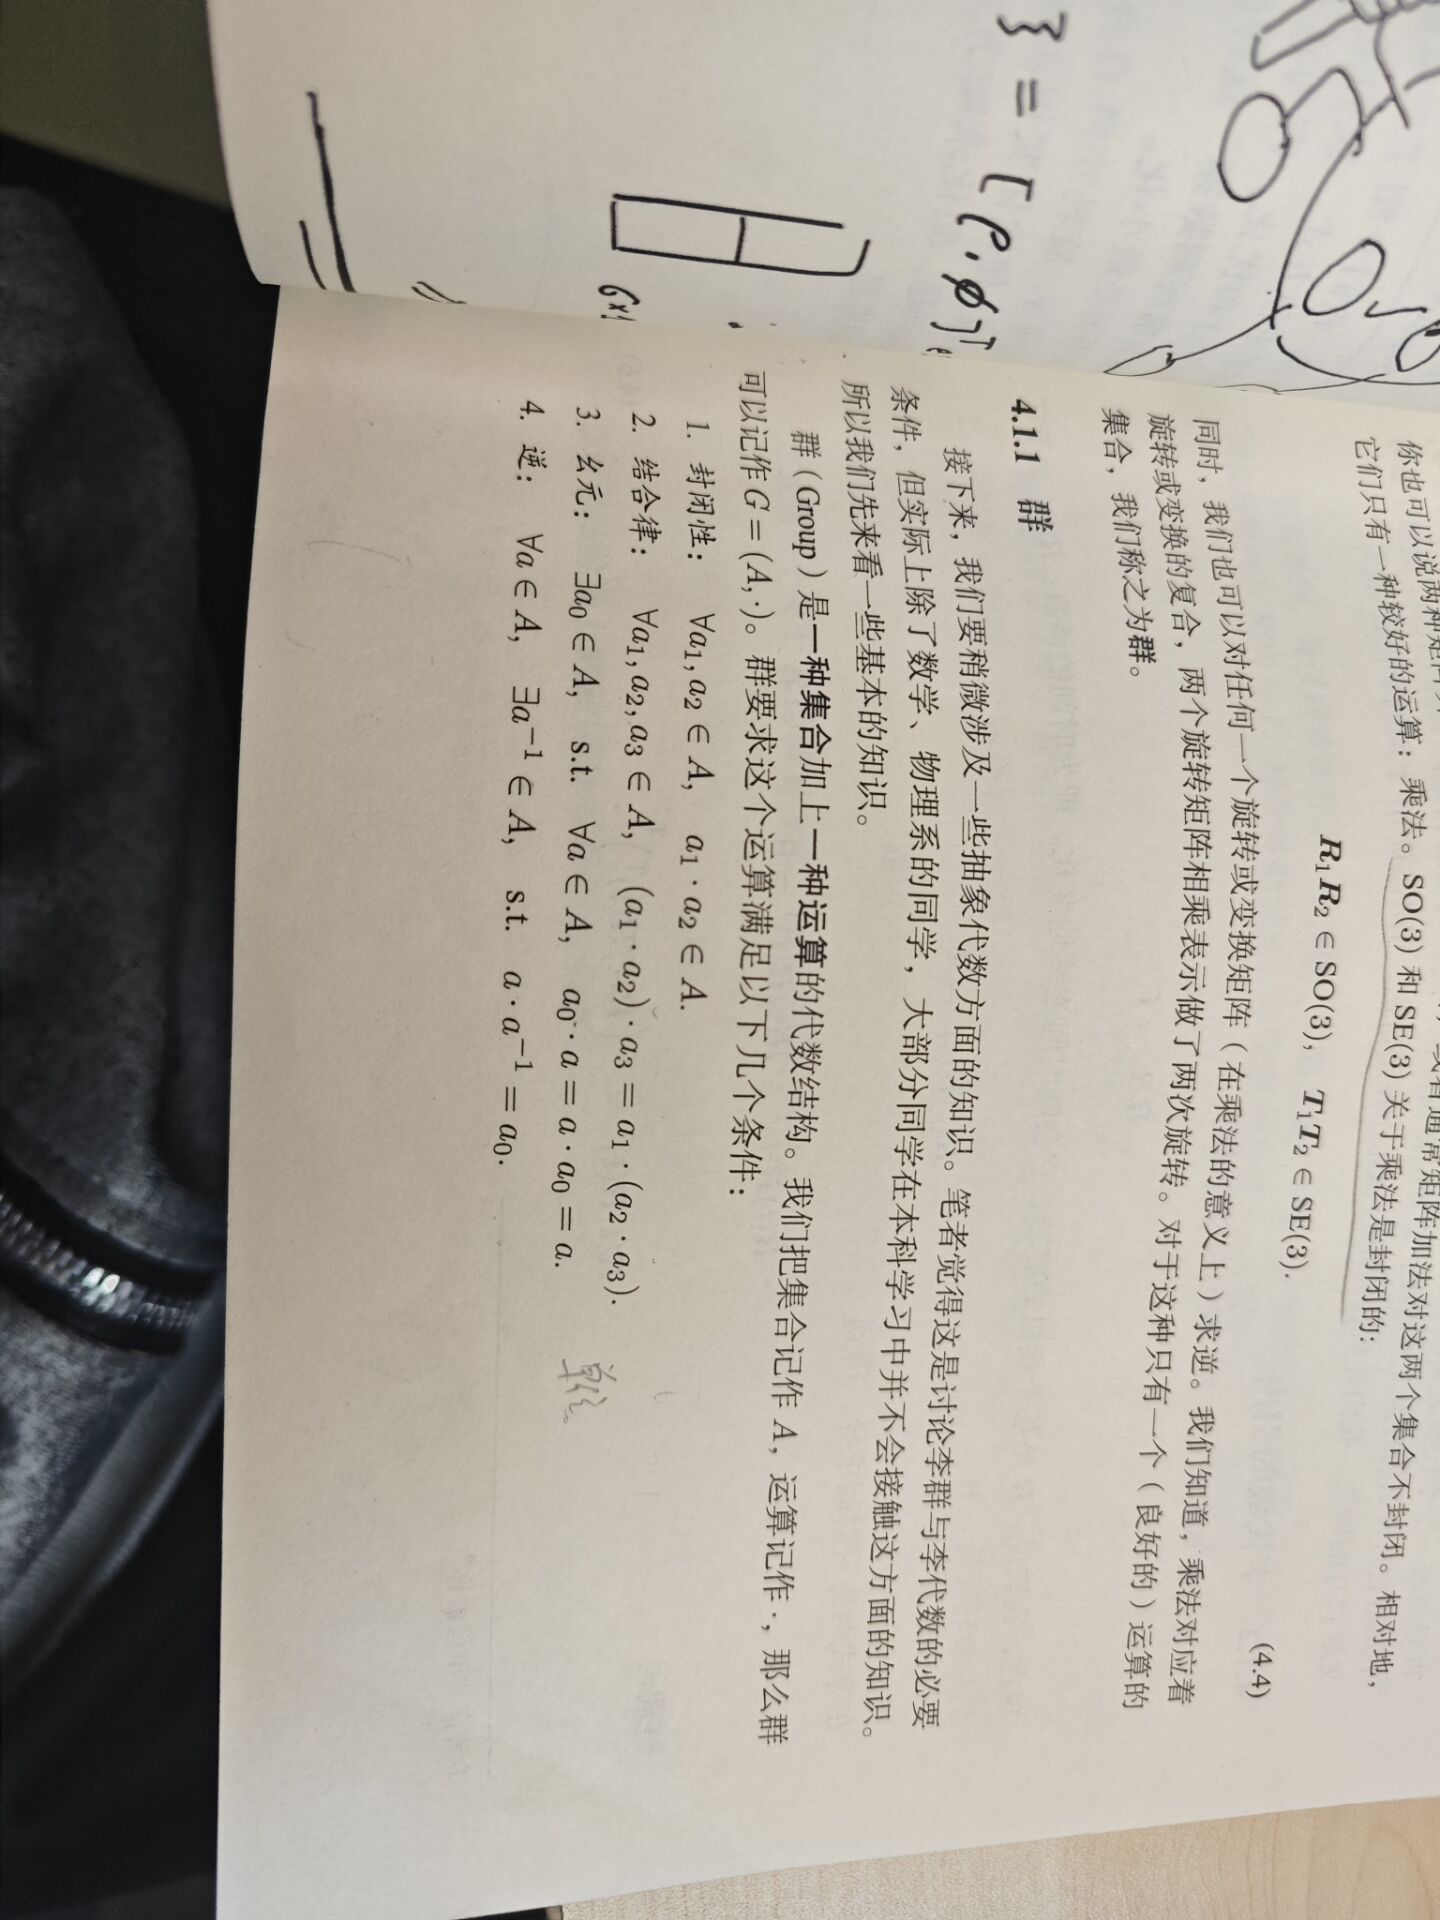 } = [ρ.φ]ᵀ
6×1
你也可以说两种矩阵
或者通常矩阵加法对这两个集合不封闭。相对地，
它们只有一种较好的运算：乘法。SO(3) 和 SE(3) 关于乘法是封闭的：
R₁R₂ ∈ SO(3), T₁T₂ ∈ SE(3). (4.4)
同时，我们也可以对任何一个旋转或变换矩阵（在乘法的意义上）求逆。我们知道，乘法对应着
旋转或变换的复合，两个旋转矩阵相乘表示做了两次旋转。对于这种只有一个（良好的）运算的
集合，我们称之为群。
4.1.1 群
接下来，我们要稍微涉及一些抽象代数方面的知识。笔者觉得这是讨论李群与李代数的必要
条件，但实际上除了数学、物理系的同学，大部分同学在本科学习中并不会接触这方面的知识。
所以我们先来看一些基本的知识。
群（Group）是一种集合加上一种运算的代数结构。我们把集合记作 A，运算记作 ·，那么群
可以记作 G = (A, ·)。群要求这个运算满足以下几个条件：
1. 封闭性： ∀a₁, a₂ ∈ A, a₁ · a₂ ∈ A.
2. 结合律： ∀a₁, a₂, a₃ ∈ A, (a₁ · a₂) · a₃ = a₁ · (a₂ · a₃).
3. 幺元： ∃a₀ ∈ A, s.t. ∀a ∈ A, a₀ · a = a · a₀ = a. 单位。
4. 逆： ∀a ∈ A, ∃a⁻¹ ∈ A, s.t. a · a⁻¹ = a₀.